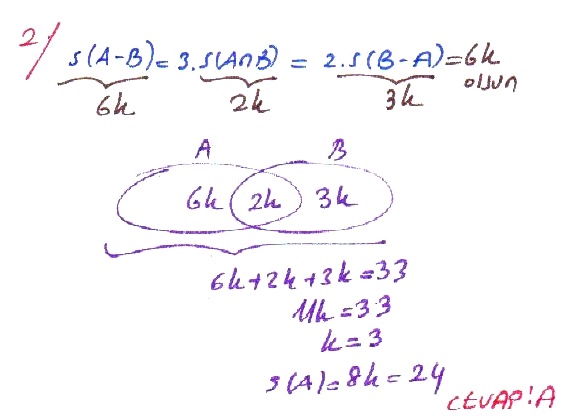 2/ s(A-B)=3.s(A∩B) = 2.s(B-A)=6k
olsun
6k 2k 3k
A B
6k 2k 3k
6k+2k+3k=33
11k=33
k=3
s(A)=8k=24
CEVAP:A